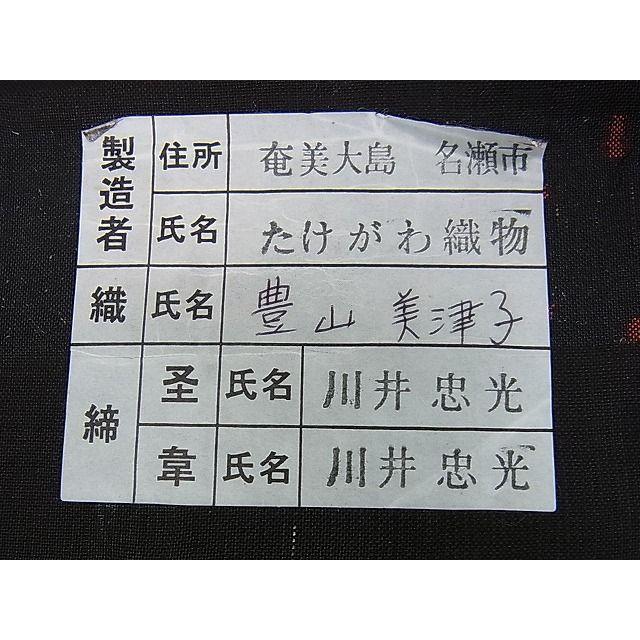 製造者 住所 奄美大島 名瀬市
氏名 たけがわ織物
織 氏名 豊山 美津子
締 圣 氏名 川井忠光
韋 氏名 川井忠光